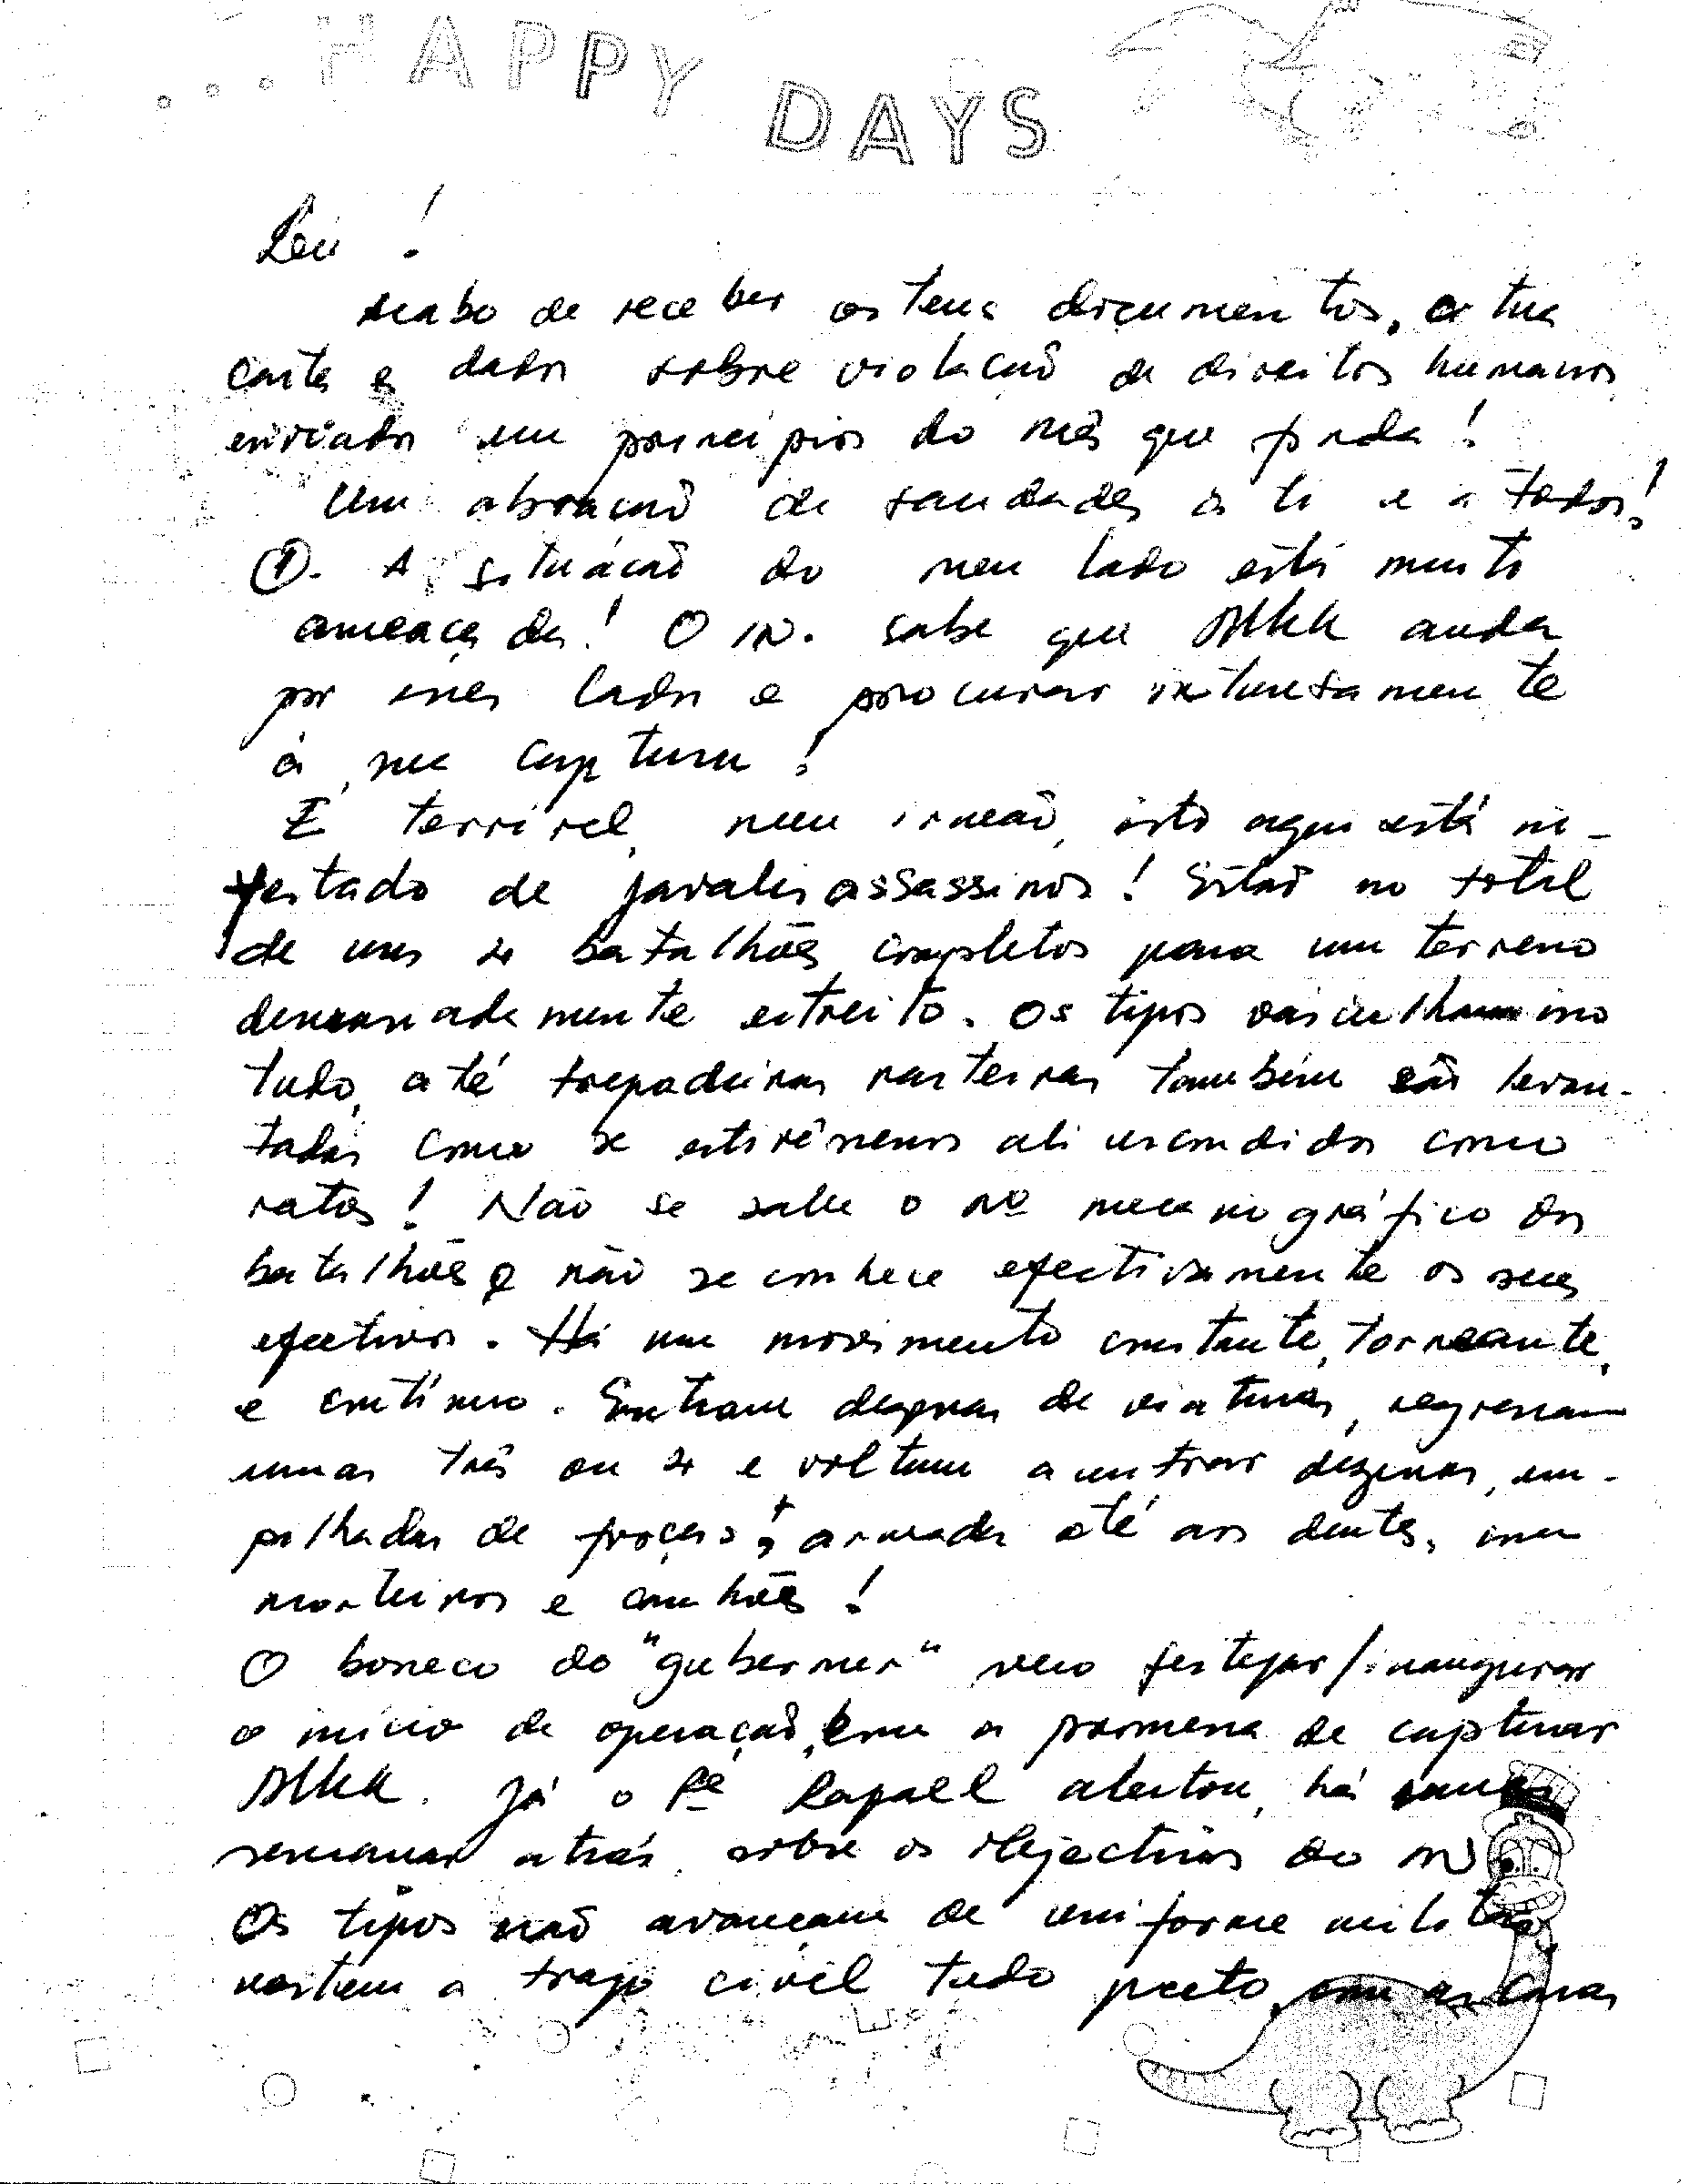 ...HAPPY DAYS
Leu!
Acabo de receber os teus documentos, a tua
carta e dados sobre violação de direitos humanos
enviados em princípios do mês que finda!
Um abração de saudades a ti e a todos!
①. A situação do meu lado está muito
ameaçada! O IN. sabe que MHK anda
por esses lados e procurar intensamente
a sua captura!
É terrível, meu irmão, isto aqui está in-
festado de javalis assassinos! Estão no total
de uns 4 batalhões completos para um terreno
demasiadamente estreito. Os tipos vasculham
tudo, até trepadeiras rasteiras também são levan-
tadas como se estivéssemos ali escondidos como
ratos! Não se sabe o nº mecanográfico dos
batalhões e não se conhece efectivamente os seus
efectivos. Há um movimento constante, torneante,
e contínuo. Entram dezenas de viaturas, regressam
umas três ou 4 e voltam a entrar dezenas, em-
pilhadas de forças, armada até aos dentes, com
morteiros e canhões!
O boneco do "guberner" veio festejar/inaugurar
o início de operação, com a promessa de capturar
MHK. Já o Pe Rafael alertou, há umas
semanas atrás, sobre os objectivos do IN.
Os tipos não avançam de uniforme militar
vestem a trajo civil tudo preto, com as caras